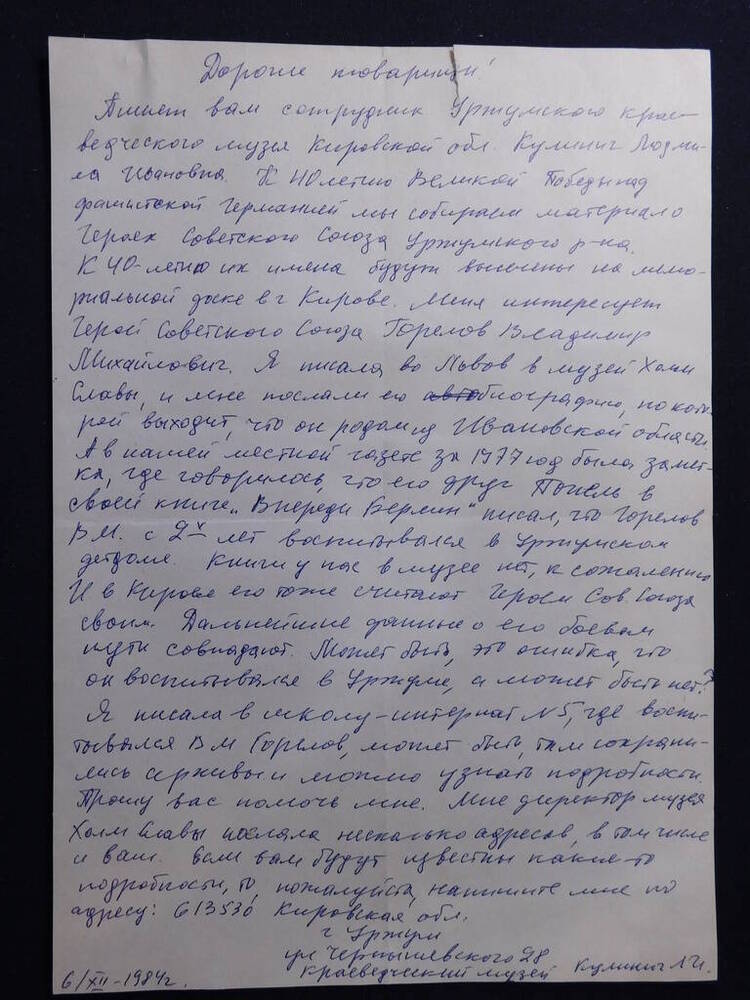 Дорогие товарищи!
Пишет вам сотрудник Уржумского крае-
ведческого музея Кировской обл. Кулинич Людми-
ла Ивановна. К 40летию Великой Победы над
фашистской Германией мы собираем материал о
Героях Советского Союза Уржумского р-на.
К 40-летию их имена будут высечены на мемо-
риальной доске в г Кирове. Меня интересует
Герой Советского Союза Горелов Владимир
Михайлович. Я писала во Львов в музей Холм
Славы, и мне послали его биографию, по кото-
рой выходит, что он родом из Ивановской области.
А в нашей местной газете за 1977 год была замет-
ка, где говорилось, что его друг Попель в
своей книге „Впереди Берлин" писал, что Горелов
В М. с 2х лет воспитывался в Уржумском
детдоме. Книги у нас в музее нет, к сожалению
И в Кирове его тоже считают Героем Сов. Союза
своим. Дальнейшие данные о его боевом
пути совпадают. Может быть, это ошибка, что
он воспитывался в Уржуме, а может быть нет?
Я писала в школу-интернат №5, где воспи-
тывался В М Горелов, может быть, там сохрани-
лись архивы и можно узнать подробности.
Прошу вас помочь мне. Мне директор музея
Холм Славы послала несколько адресов, в том числе
и ваш. Если вам будут известны какие-то
подробности, то, пожалуйста, напишите мне по
адресу: 613530 Кировская обл.
г Уржум
ул Чернышевского 28
краеведческий музей Кулинич Л.И.
6/XII-1984г.